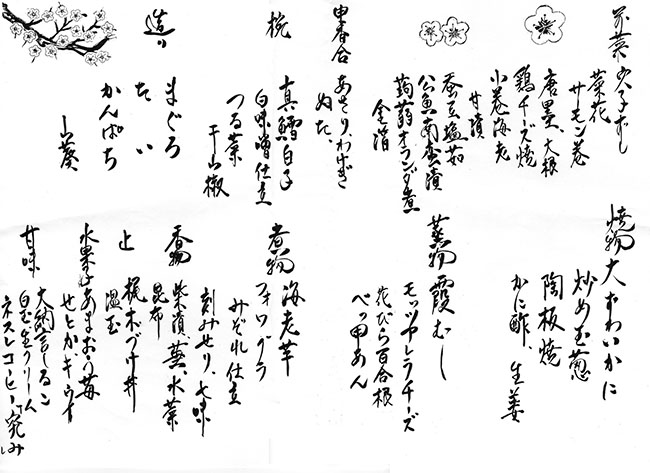 芥菜穴子すし
菜花
サーモン巻
唐墨、大根
鶏チーズ焼
小巻海老
甘漬
蚕豆塩茹
公魚南蛮漬
蒟蒻オランダ煮
金箔
あさり、わけぎ
ぬた、
椀
真鱈白子
白味噌仕立
つる菜
干山椒
造り
まぐろ
たい
かんぱち
山葵
焼物
大ずわいかに
炒め玉葱
陶板焼
かに酢、生姜
蒸物
霞むし
モッツァレラチーズ
花びら百合根
べっ甲あん
煮物
海老芋
フォワグラ
みぞれ仕立
刻みせり、七味
香物
柴漬、蕪、水菜
昆布
止
温玉
水菓子
あまおう苺
せとか、キウイ
甘味
大納言しるこ
白玉生クリーム
ネスレコーヒー